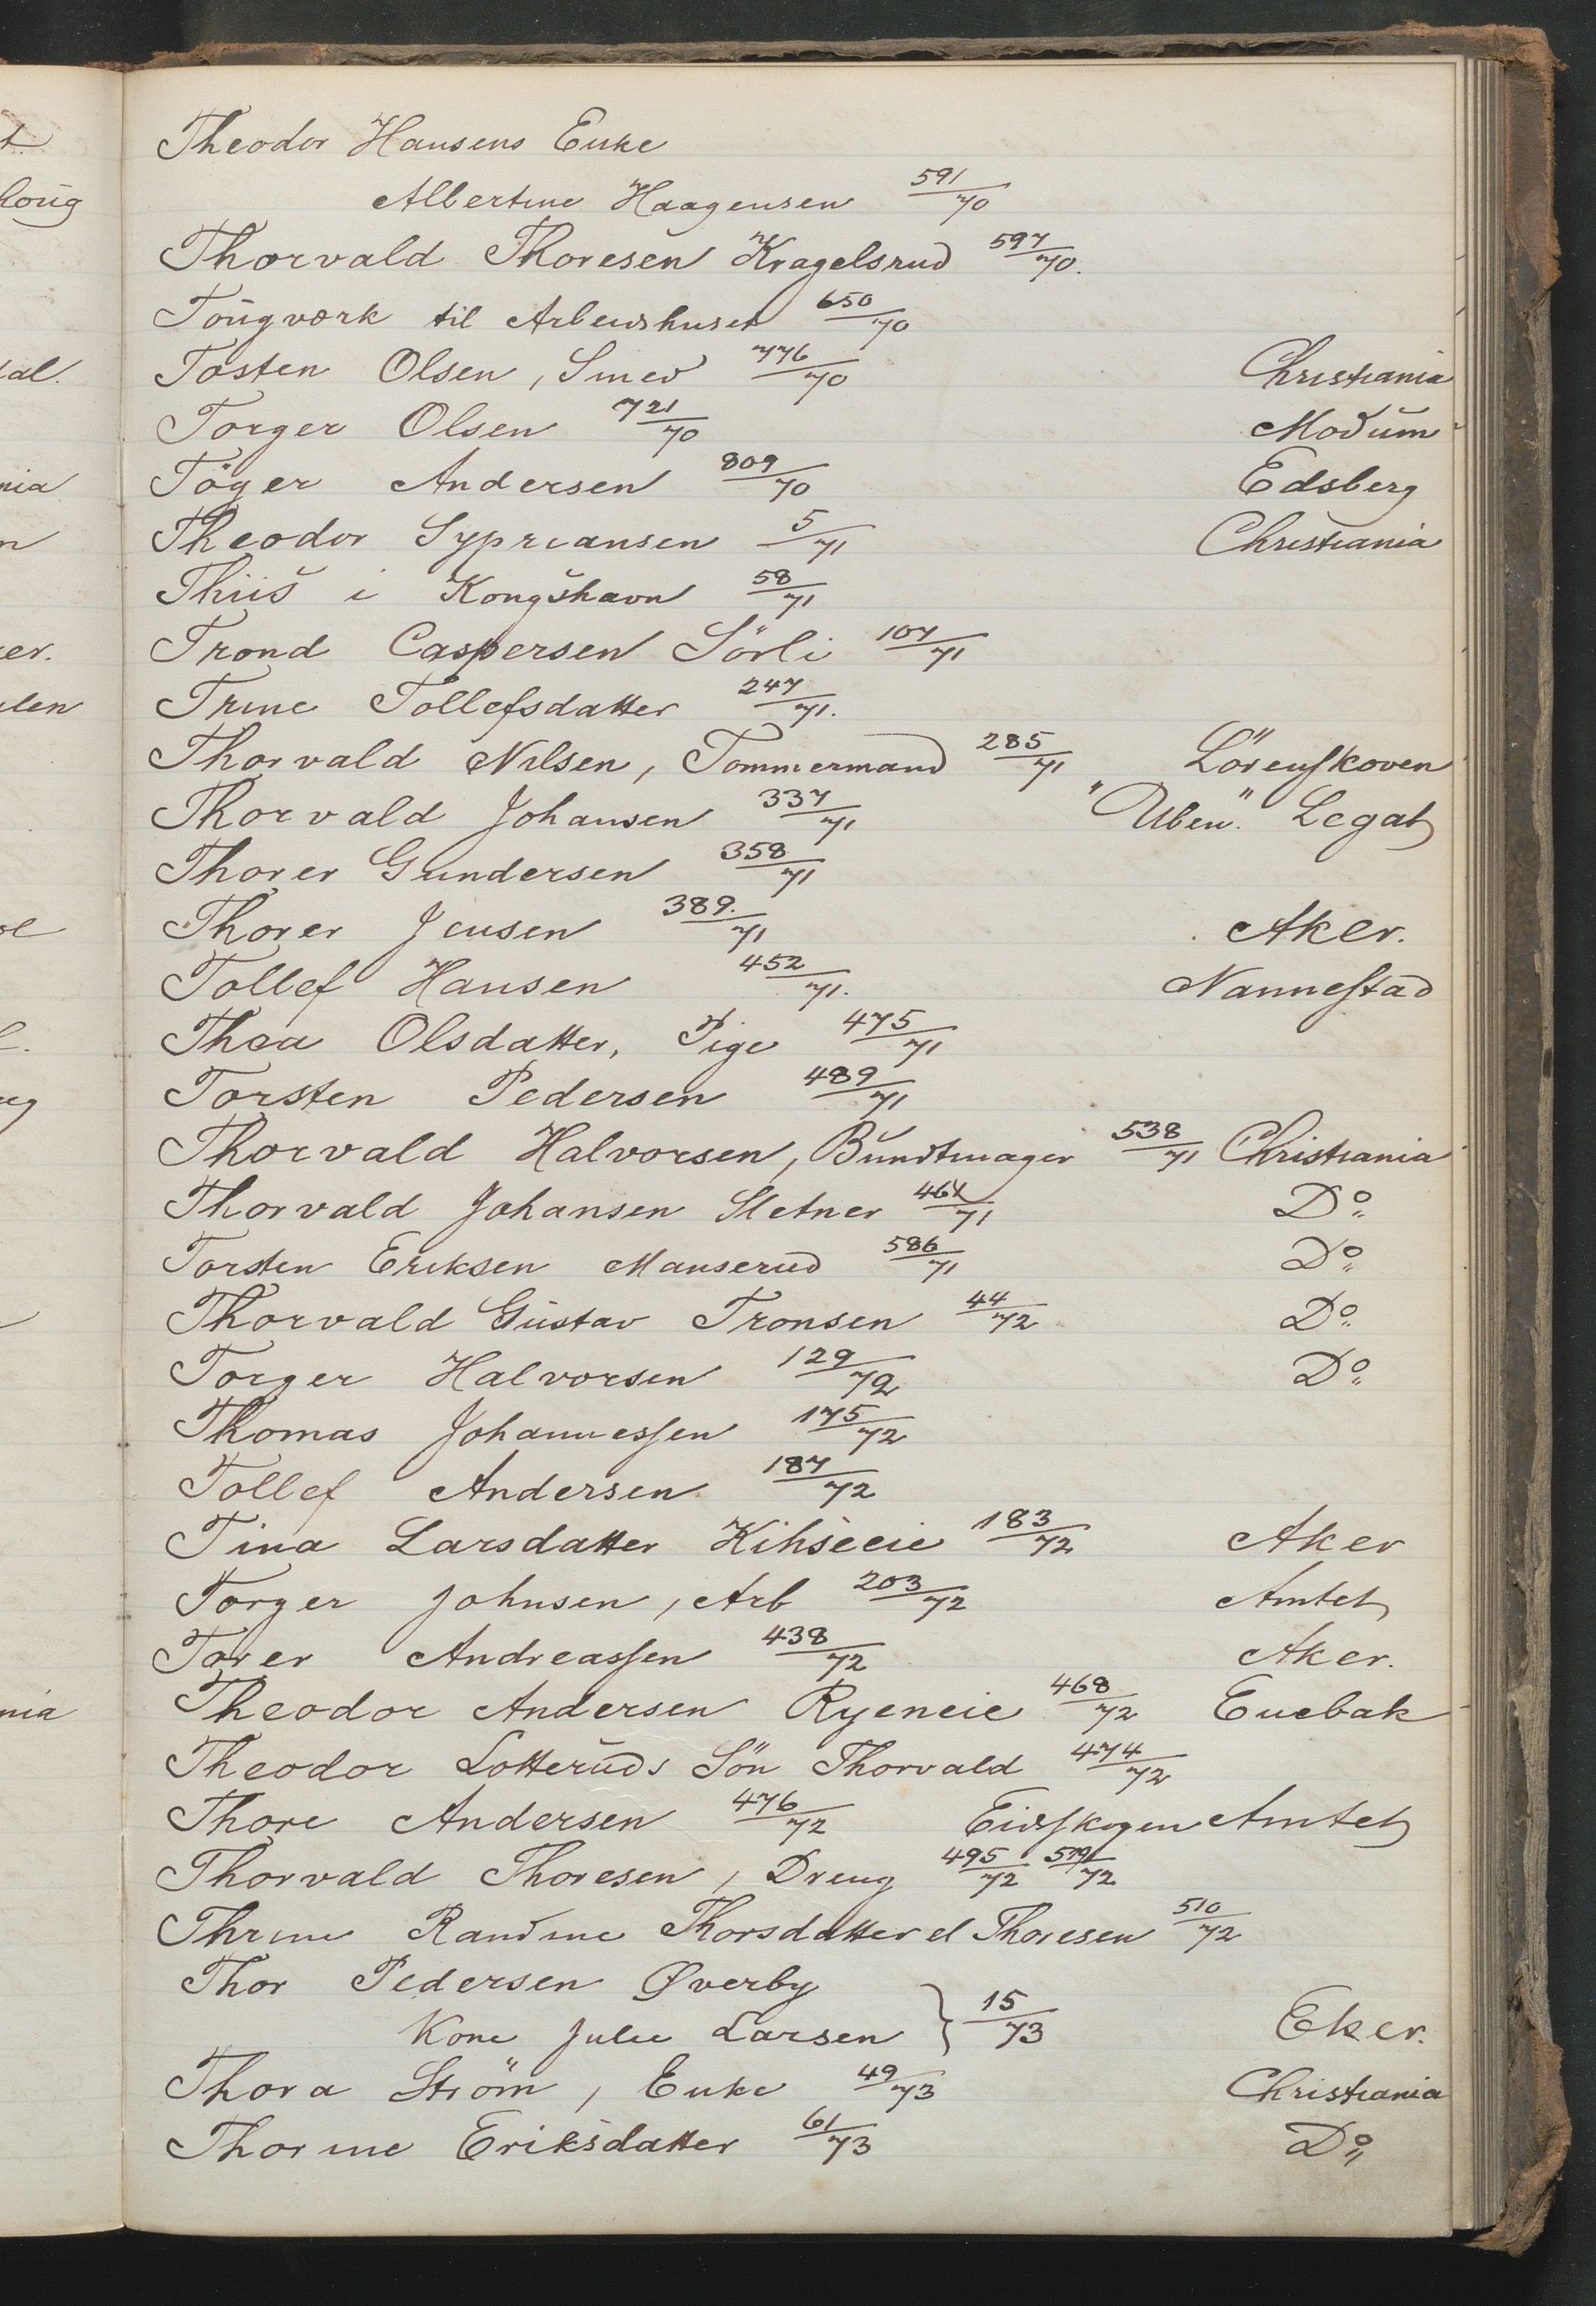 Theodor Hansens Enke
Albertine Haagensen 591/70
Thorvald Thoresen Kragelsrud 597/70.
Tougværk til Arbeidshuset 650/70
Tosten Olsen, Smed 776/70 Christiania
Torger Olsen 721/70 Modum
Töger Andersen 809/70 Edsberg
Theodor Sypriansen 5/71 Christiania
Thiis i Kongshavn 58/71
Trond Caspersen Sörli 107/71
Trine Tollefsdatter 247/71.
Thorvald Nilsen, Tømmermand 285/71 Lörenskoven
Thorvald Johansen 337/71 "Uben." Legat
Thorer Gundersen 358/71
Thorer Jensen 389./71 Aker.
Tollef Hansen 452/71. Nannestad
Thea Olsdatter, Pige 475/71
Torsten Pedersen 489/71
Thorvald Halvorsen, Bundtmager 538/71 Christiania
Thorvald Johansen Sletner 71 Do
Torsten Eriksen Manserud 586/71 Do
Thorvald Gustav Tronsen 44/72 Do
Torger Halvorsen 129/72 Do
Thomas Johannessen 175/72
Tollef Andersen 187/72
Tina Larsdatter 183/72 Aker
Torger Johnsen, Arb 203/72 Amtet
Torer Andreassen 438/72 Aker.
Theodor Andersen Ryeneie 468/72 Enebak
Theodor Lotteruds Sön Thorvald 474/72
Thore Andersen 476/72 Eidskogen Amtet
Thorvald Thoresen, Dreng 495/72 72
Thrine Randine Thorsdatter el Thoresen 510/72
Thor Pedersen Øverby
Kone Julie Larsen } 15/73 Eker.
Thora Ström, Enke 49/73 Christiania
Thorine Eriksdatter 61/73 Do